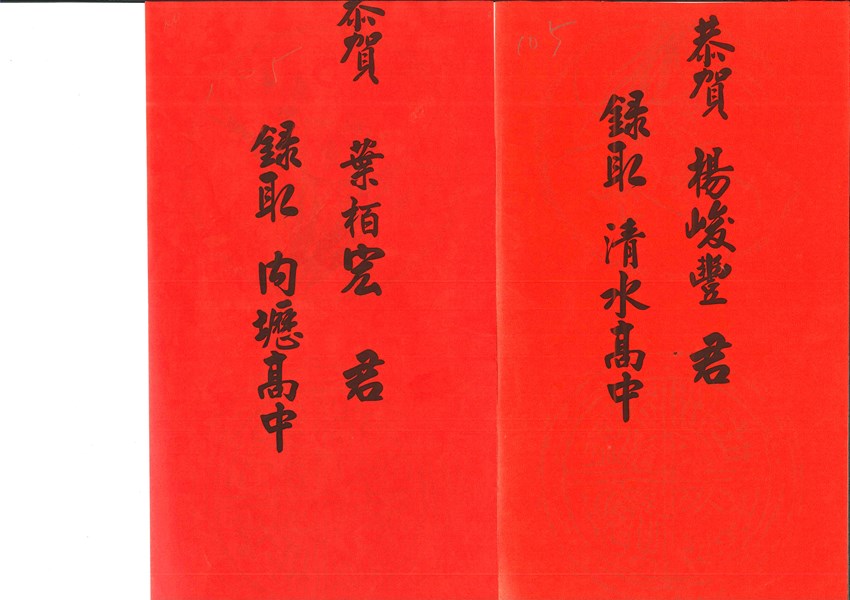 恭賀 楊峻豐 君
錄取 清水高中
恭賀 葉栢宏 君
錄取 內壢高中